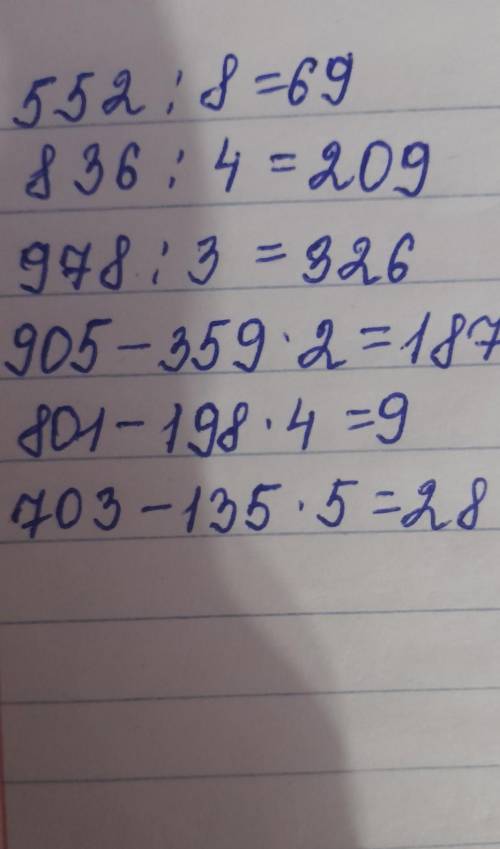 552 : 8 = 69
836 : 4 = 209
978 : 3 = 326
905 - 359 · 2 = 187
801 - 198 · 4 = 9
703 - 135 · 5 = 28